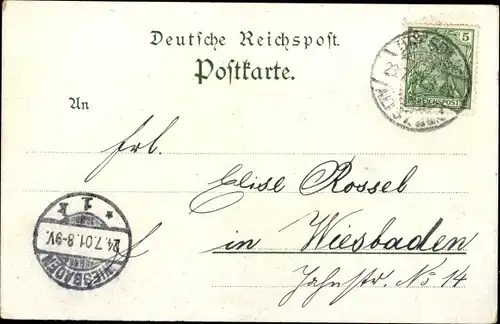 Deutsche Reichspost.
Postkarte.
5
REICHSPOST
An
Frl.
Elise Rossel
in Wiesbaden
Jahnstr. No 14
WIESBADEN
24.7.01.8-9V.
* 1 k *